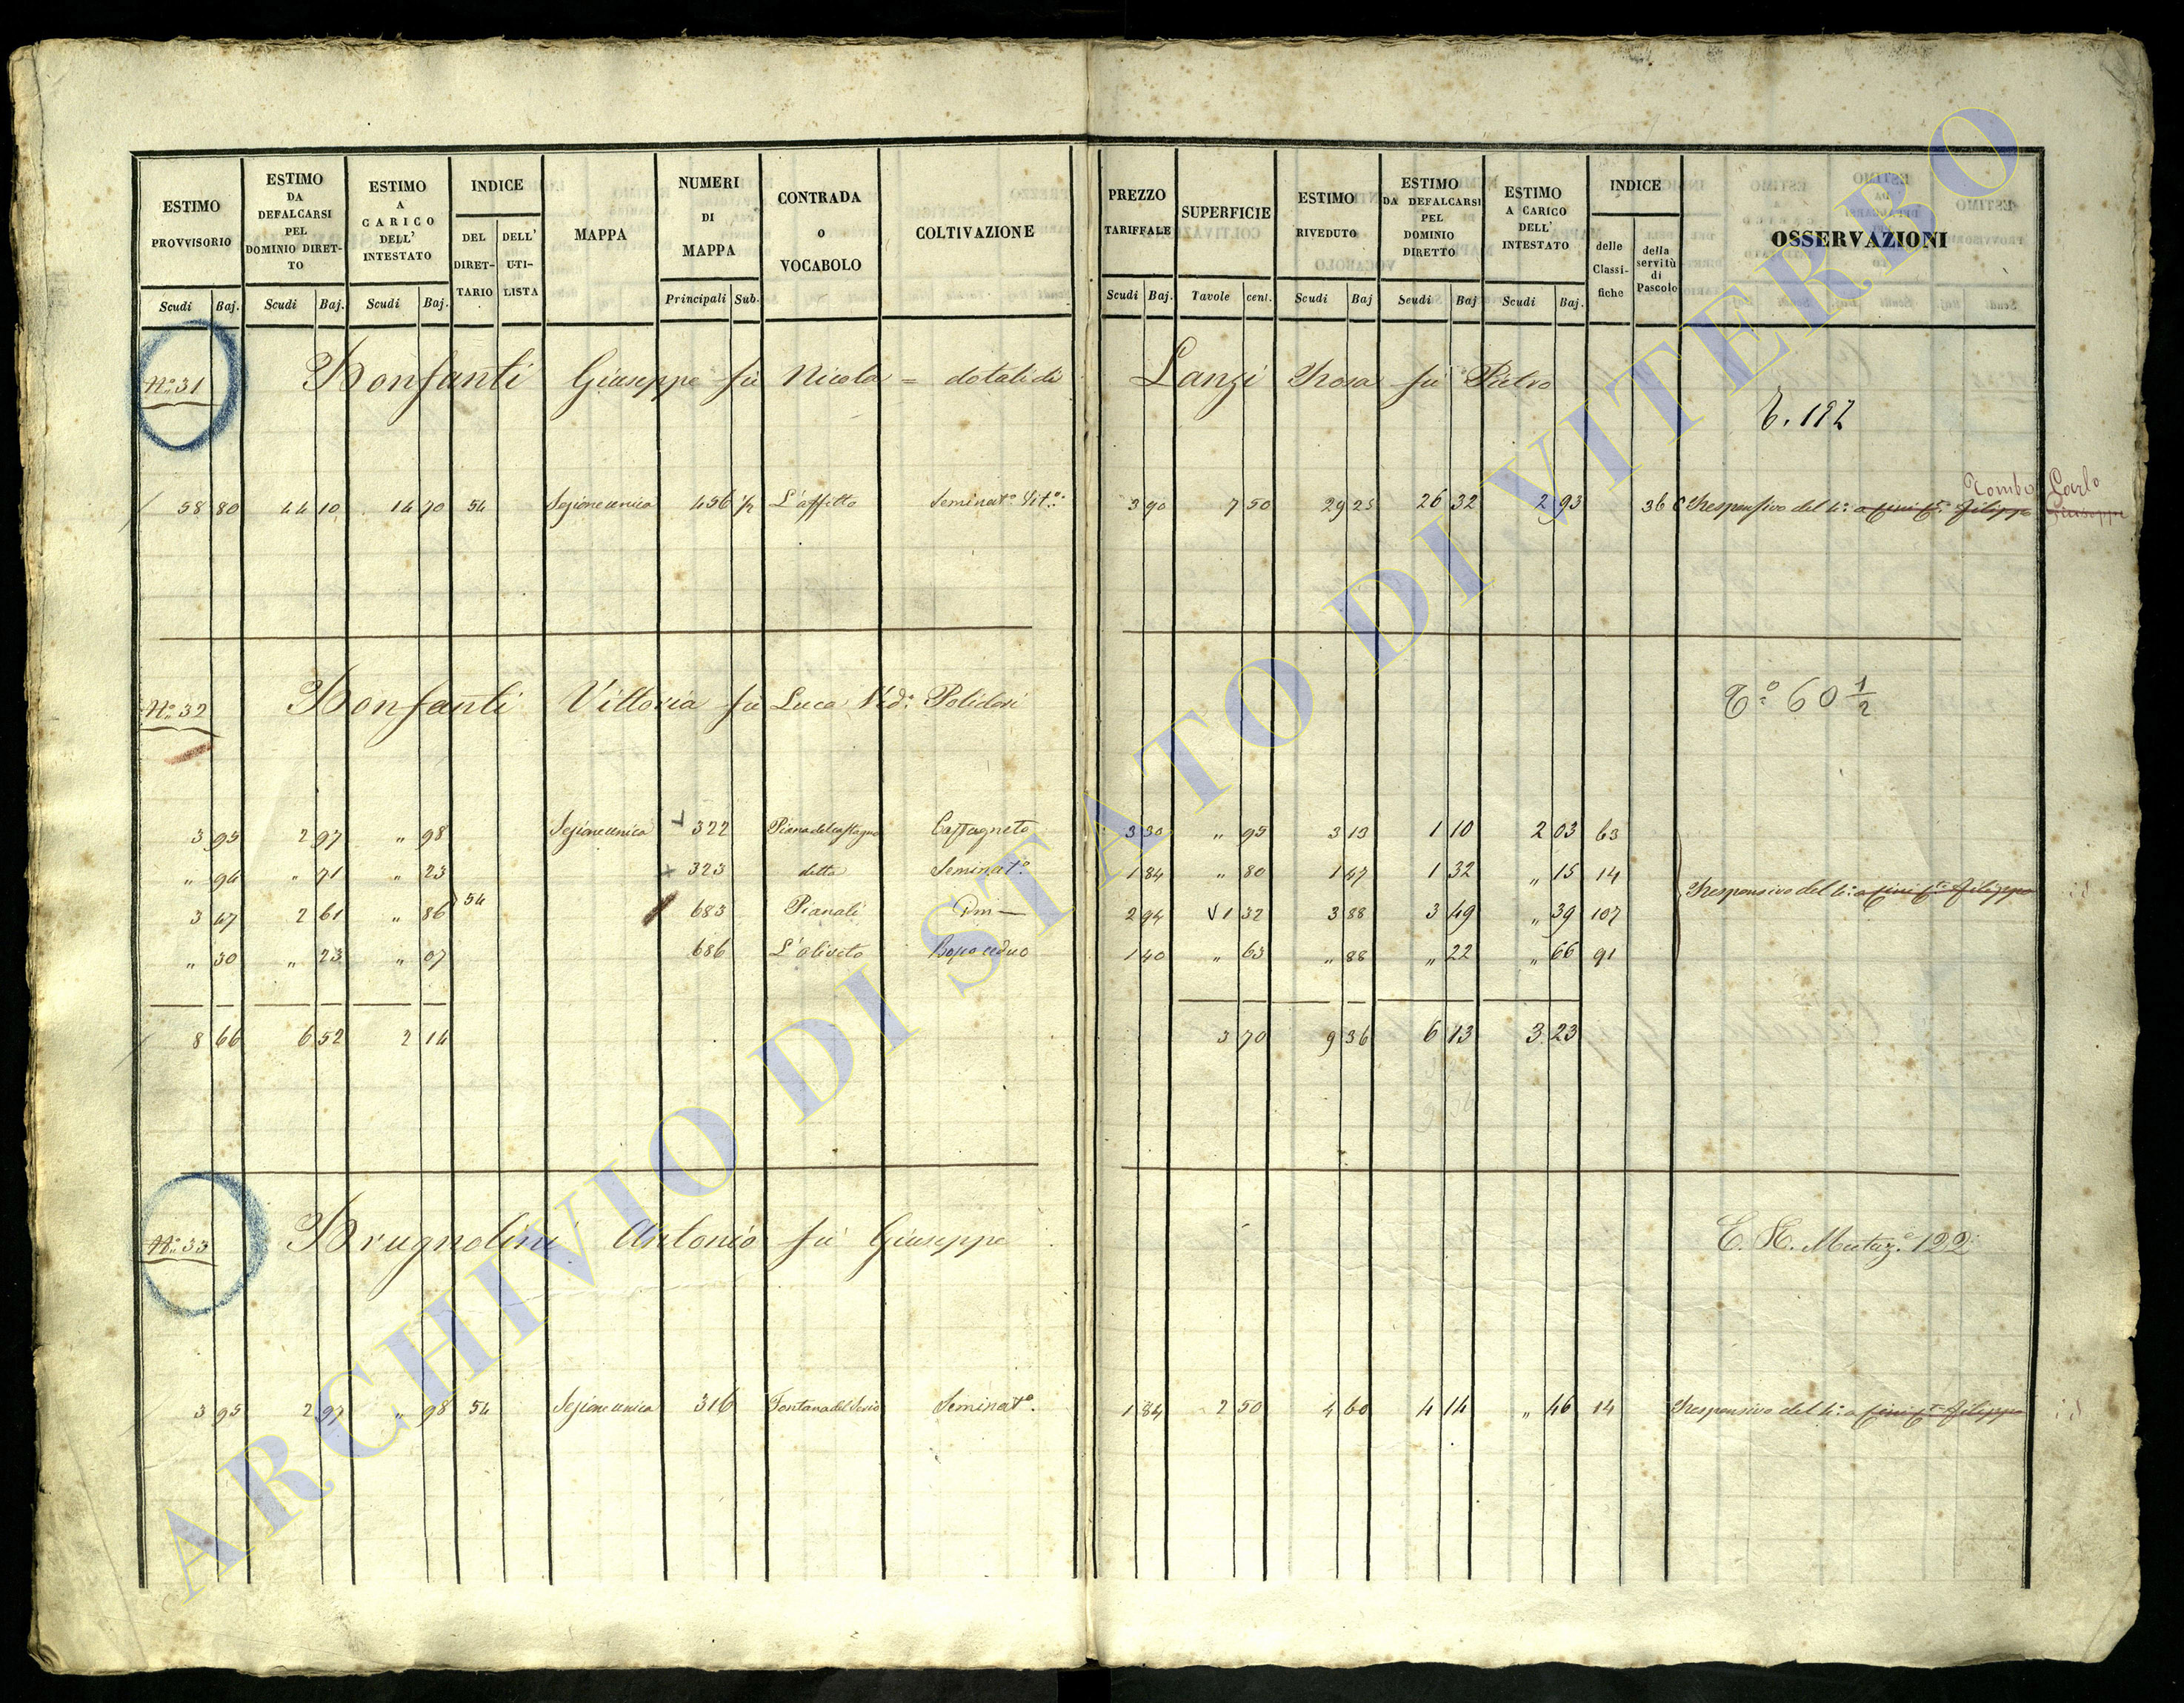 ESTIMO PROVVISORIO
ESTIMO DA DEFALCARSI PEL DOMINIO DIRET-TO
ESTIMO A CARICO DELL' INTESTATO
INDICE
DEL DIRET-TARIO
DELL' UTI-LISTA
MAPPA
NUMERI DI MAPPA
CONTRADA o VOCABOLO
COLTIVAZIONE
PREZZO TARIFFALE
SUPERFICIE
ESTIMO RIVEDUTO
ESTIMO DA DEFALCARSI PEL DOMINIO DIRETTO
ESTIMO A CARICO DELL' INTESTATO
INDICE
delle Classi-fiche
della servitù di Pascolo
OSSERVAZIONI
Scudi Baj. Scudi Baj. Scudi Baj. Principali Sub. Scudi Baj. Tavole cent. Scudi Baj Scudi Baj Scudi Baj.
N.º 31 Bonfanti Giuseppe fù Nicola = dotali di Lanzi Rosa fù Pietro
197
Carlo
58 80 44 10 14 70 54 Sezione unica 456 ½ L'affitto Seminat.º Vit.º 3 90 7 50 29 25 26 32 2 93 36 Responsivo del 4.º a Filippo Giuseppe
N.º 32 Bonfanti Vittoria fù Luca Ved.ª Polidori
60 1/2
3 95 2 97 " 98 Sezione unica 322 Piana del castagno Castagneto 3 30 " 95 3 13 1 10 2 03 63
" 94 " 71 " 23 323 detto Seminat.º 1 84 " 80 1 47 1 32 " 15 14
3 47 2 61 " 86 54 683 Pianali Dm 2 94 1 32 3 88 3 49 " 39 107
Responsivo del 4.º a Filippo id
" 30 " 23 " 07 686 L'oliveto Bosco ceduo 1 40 " 63 " 88 " 22 " 66 91
8 66 6 52 2 14 3 70 9 36 6 13 3 23
N.º 33 Brugnolini Antonio fù Giuseppe
Mutaz.e 122
3 95 2 97 " 98 54 Sezione unica 316 Fontana del Serio Seminat.º 1 84 2 50 4 60 4 14 " 46 14 Responsivo del 4.º a Filippo id
ARCHIVIO DI STATO DI VITERBO